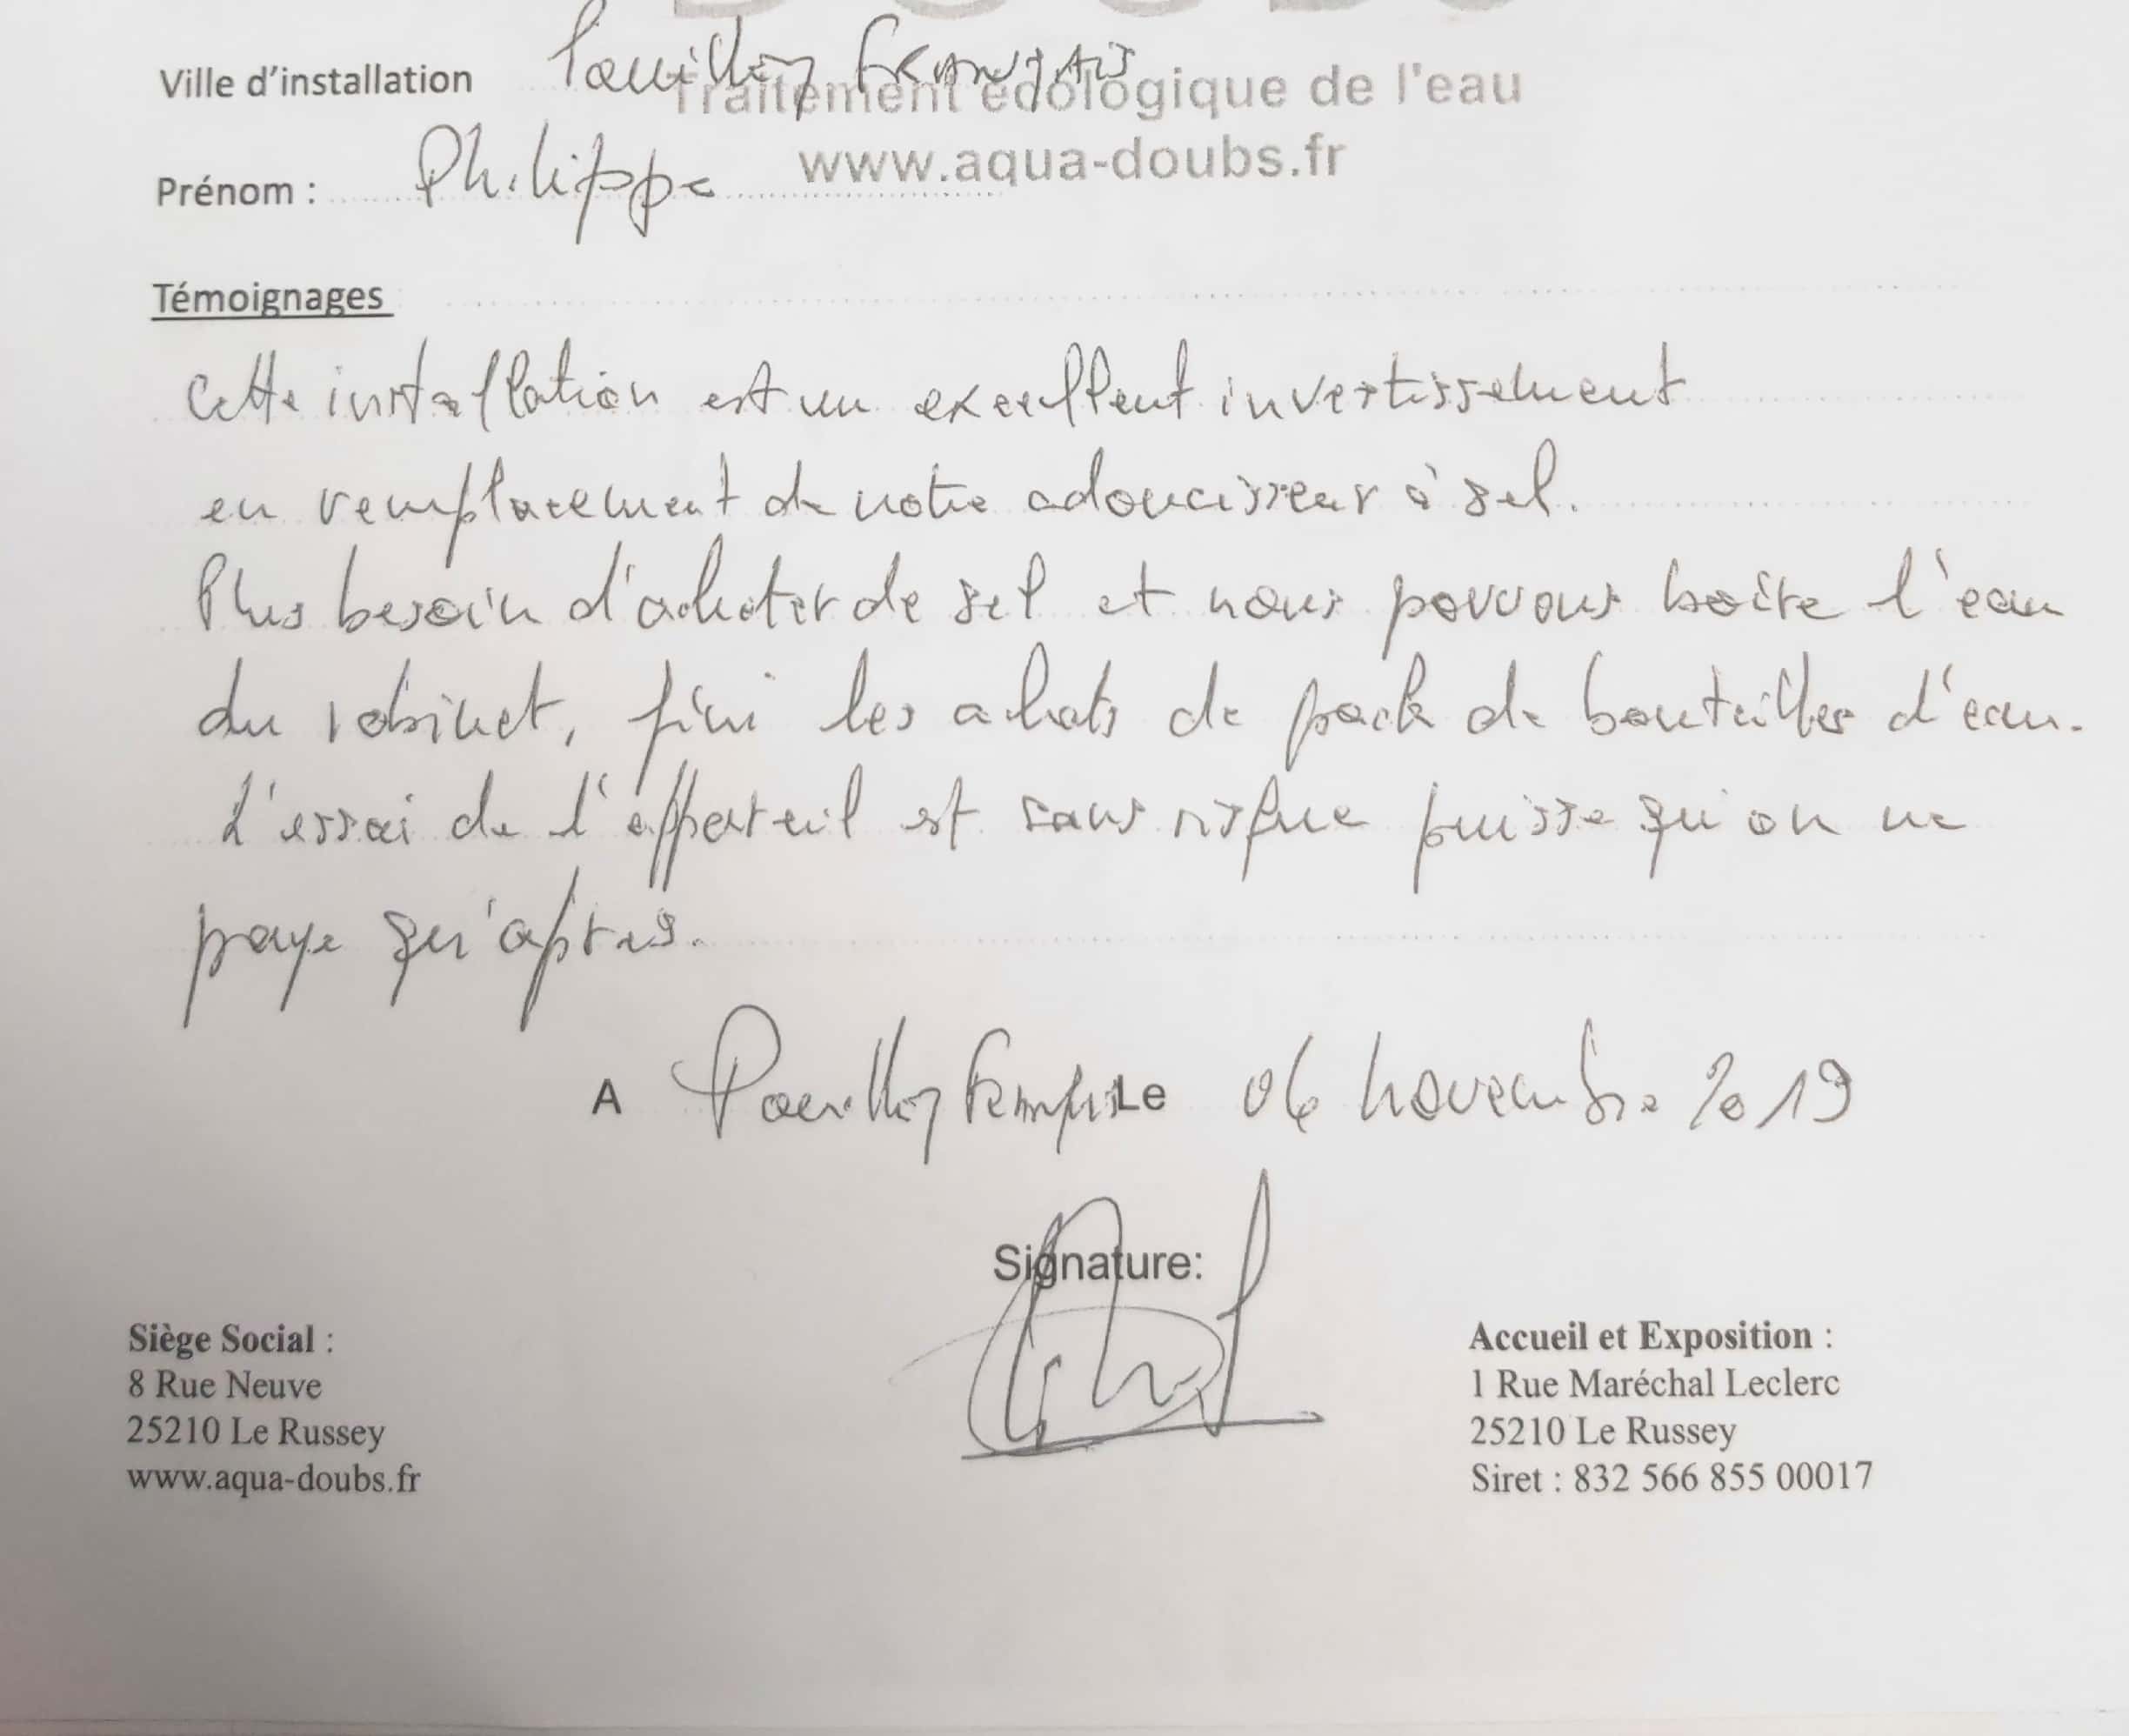 Ville d'installation Pouilley Français
Traitement écologique de l'eau
www.aqua-doubs.fr
Prénom : Philippe
Témoignages
Cette installation est un excellent investissement
en remplacement de notre adoucisseur à sel.
Plus besoin d'acheter de sel et nous pouvons boire l'eau
du robinet, fini les achats de pack de bouteilles d'eau.
L'essai de l'appareil est sans risque puisse qu'on ne
paye qu'après.
A Pouilley Français Le 06 novembre 2019
Signature:
Siège Social :
8 Rue Neuve
25210 Le Russey
www.aqua-doubs.fr
Accueil et Exposition :
1 Rue Maréchal Leclerc
25210 Le Russey
Siret : 832 566 855 00017